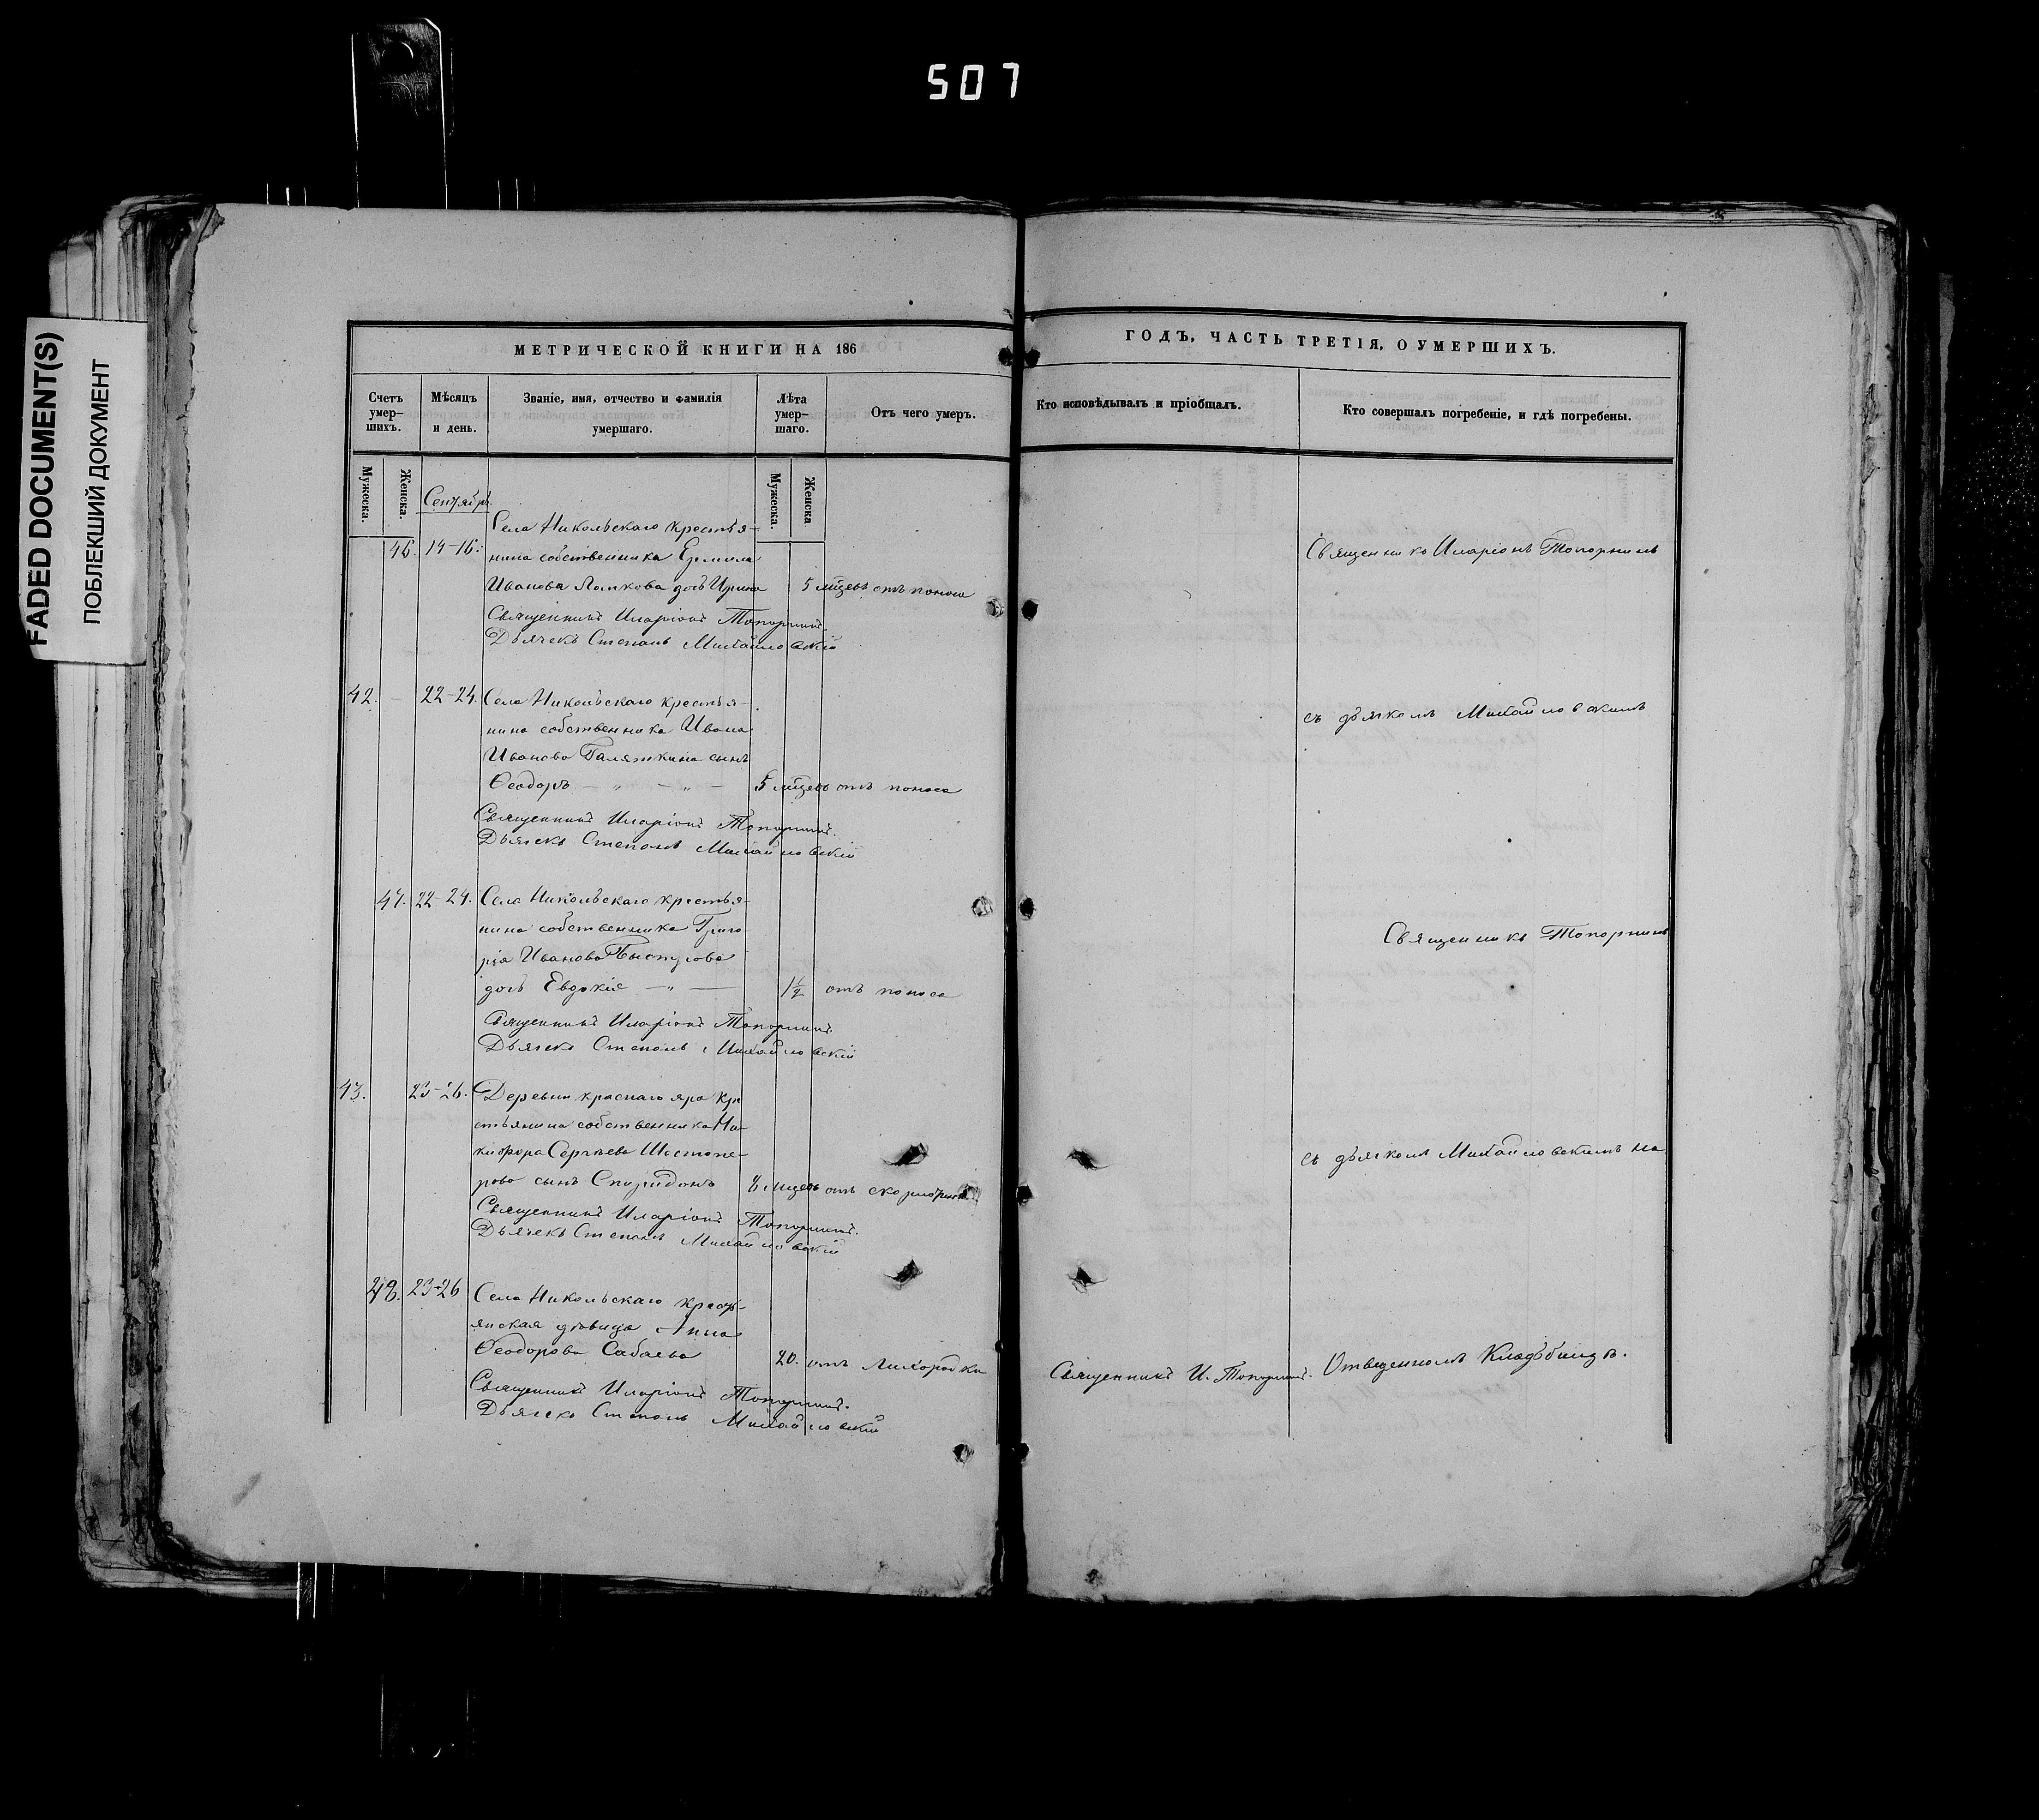 507
FADED DOCUMENT(S)
ПОБЛЕКШИЙ ДОКУМЕНТ
МЕТРИЧЕСКОЙ КНИГИ НА 186
Счетъ умер-
шихъ.
Мѣсяцъ
и день.
Званіе, имя, отчество и фамилія
умершаго.
Лѣта
умер-
шаго.
Отъ чего умеръ.
Мужеска.
Женска.
Мужеска.
Женска
Сентябрь
46. 14-16. Села Никольскаго крестья-
нина собственника Ермила
Иванова Ламкова дочь Ирина 5 мѣцевъ отъ поноса
Священникъ Иларіонъ Топорнинъ.
Дьячекъ Степанъ Михайловскій
42. 22-24. Села Никольскаго крестья-
нина собственника Ивана
Иванова Галяткина сынъ
Ѳеодоръ — „ — „ — 5 мѣцевъ отъ поноса
Священникъ Иларіонъ Топорнинъ.
Дьячекъ Степанъ Михайловскій
47. 22-24. Села Никольскаго крестья-
нина собственника Григо
рія Иванова
дочь Евдокія — „ — 1½ отъ поноса
Священникъ Иларіонъ Топорнинъ.
Дьячекъ Степанъ Михайловскій
43. 23-26. Деревни краснаго яра кре
стьянина собственника Ни-
кифора Сергѣева Шестопе-
рова сынъ Спиридонъ 8 мѣцевъ отъ
Священникъ Иларіонъ Топорнинъ.
Дьячекъ Степанъ Михайловскій
48. 23-26 Села Никольскаго кресть-
янская дѣвица Анна
Ѳеодорова Сабаева 20. отъ Лихорадки
Священникъ Иларіонъ Топорнинъ.
Дьячекъ Степанъ Михайловскій
ГОДЪ, ЧАСТЬ ТРЕТІЯ, О УМЕРШИХЪ.
Кто исповѣдывалъ и пріобщалъ.
Кто совершалъ погребеніе, и гдѣ погребены.
Священникъ Иларіонъ Топорнинъ
съ дьячкомъ Михайловскимъ
Священникъ Топорнинъ
съ дьячкомъ Михайловскимъ на
Священникъ И. Топорнинъ.
Отведенномъ Кладбищѣ.